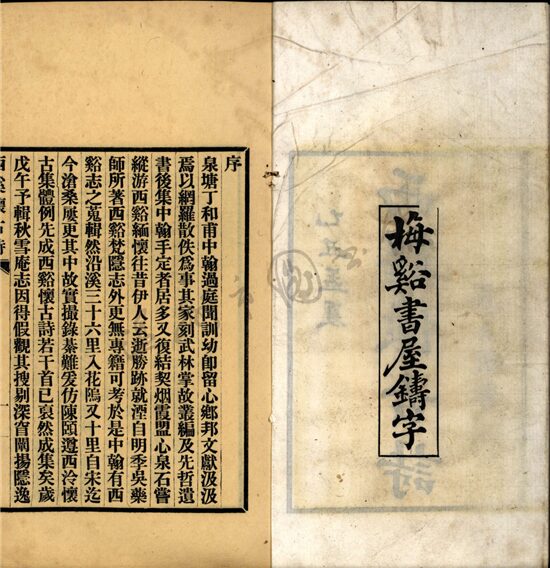 梅谿書屋鑄字
序
泉塘丁和甫中翰過庭聞訓幼卽留心鄉邦文獻汲汲
焉以網羅散佚爲事其家刻武林掌故叢編及先哲遺
書後集中翰手定者居多又復結契烟霞盟心泉石嘗
縱游西谿緬懷往昔伊人云逝勝跡就湮自明季吳藥
師所著西谿梵隱志外更無專籍可考於是中翰有西
谿志之蒐輯然沿溪三十六里入花隖又十里自宋迄
今滄桑屢更其中故實撮錄綦難爰仿陳頤道西泠懷
古集體例先成西谿懷古詩若干首已裒然成集矣歲
戊午予輯秋雪庵志因得假觀其搜剔深窅闡揚隱逸